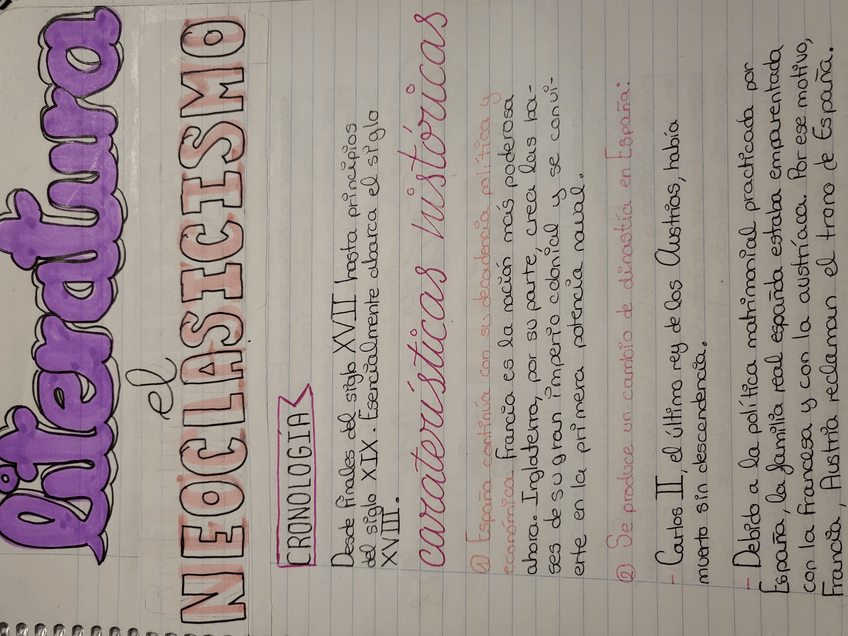 literatura
el
NEOCLASICISMO
CRONOLOGÍA
Desde finales del siglo XVII hasta principios
del siglo XIX. Esencialmente abarca el siglo
XVIII.
caraterísticas históricas
① España continúa con su decadencia política y
económica. Francia es la nación más poderosa
ahora. Inglaterra, por su parte crea las ba-
ses de su gran imperio colonial y se convi-
erte en la primera potencia naval.
② Se produce un cambio de dinastía en España:
- Carlos II, el último rey de los Austrias, había
muerto sin descendencia.
- Debido a la política matrimonial practicada por
España, la familia real españda estaba emparentada
con la francesa y con la austríaca. Por ese motivo,
Francia, Austria reclaman el trono de España.